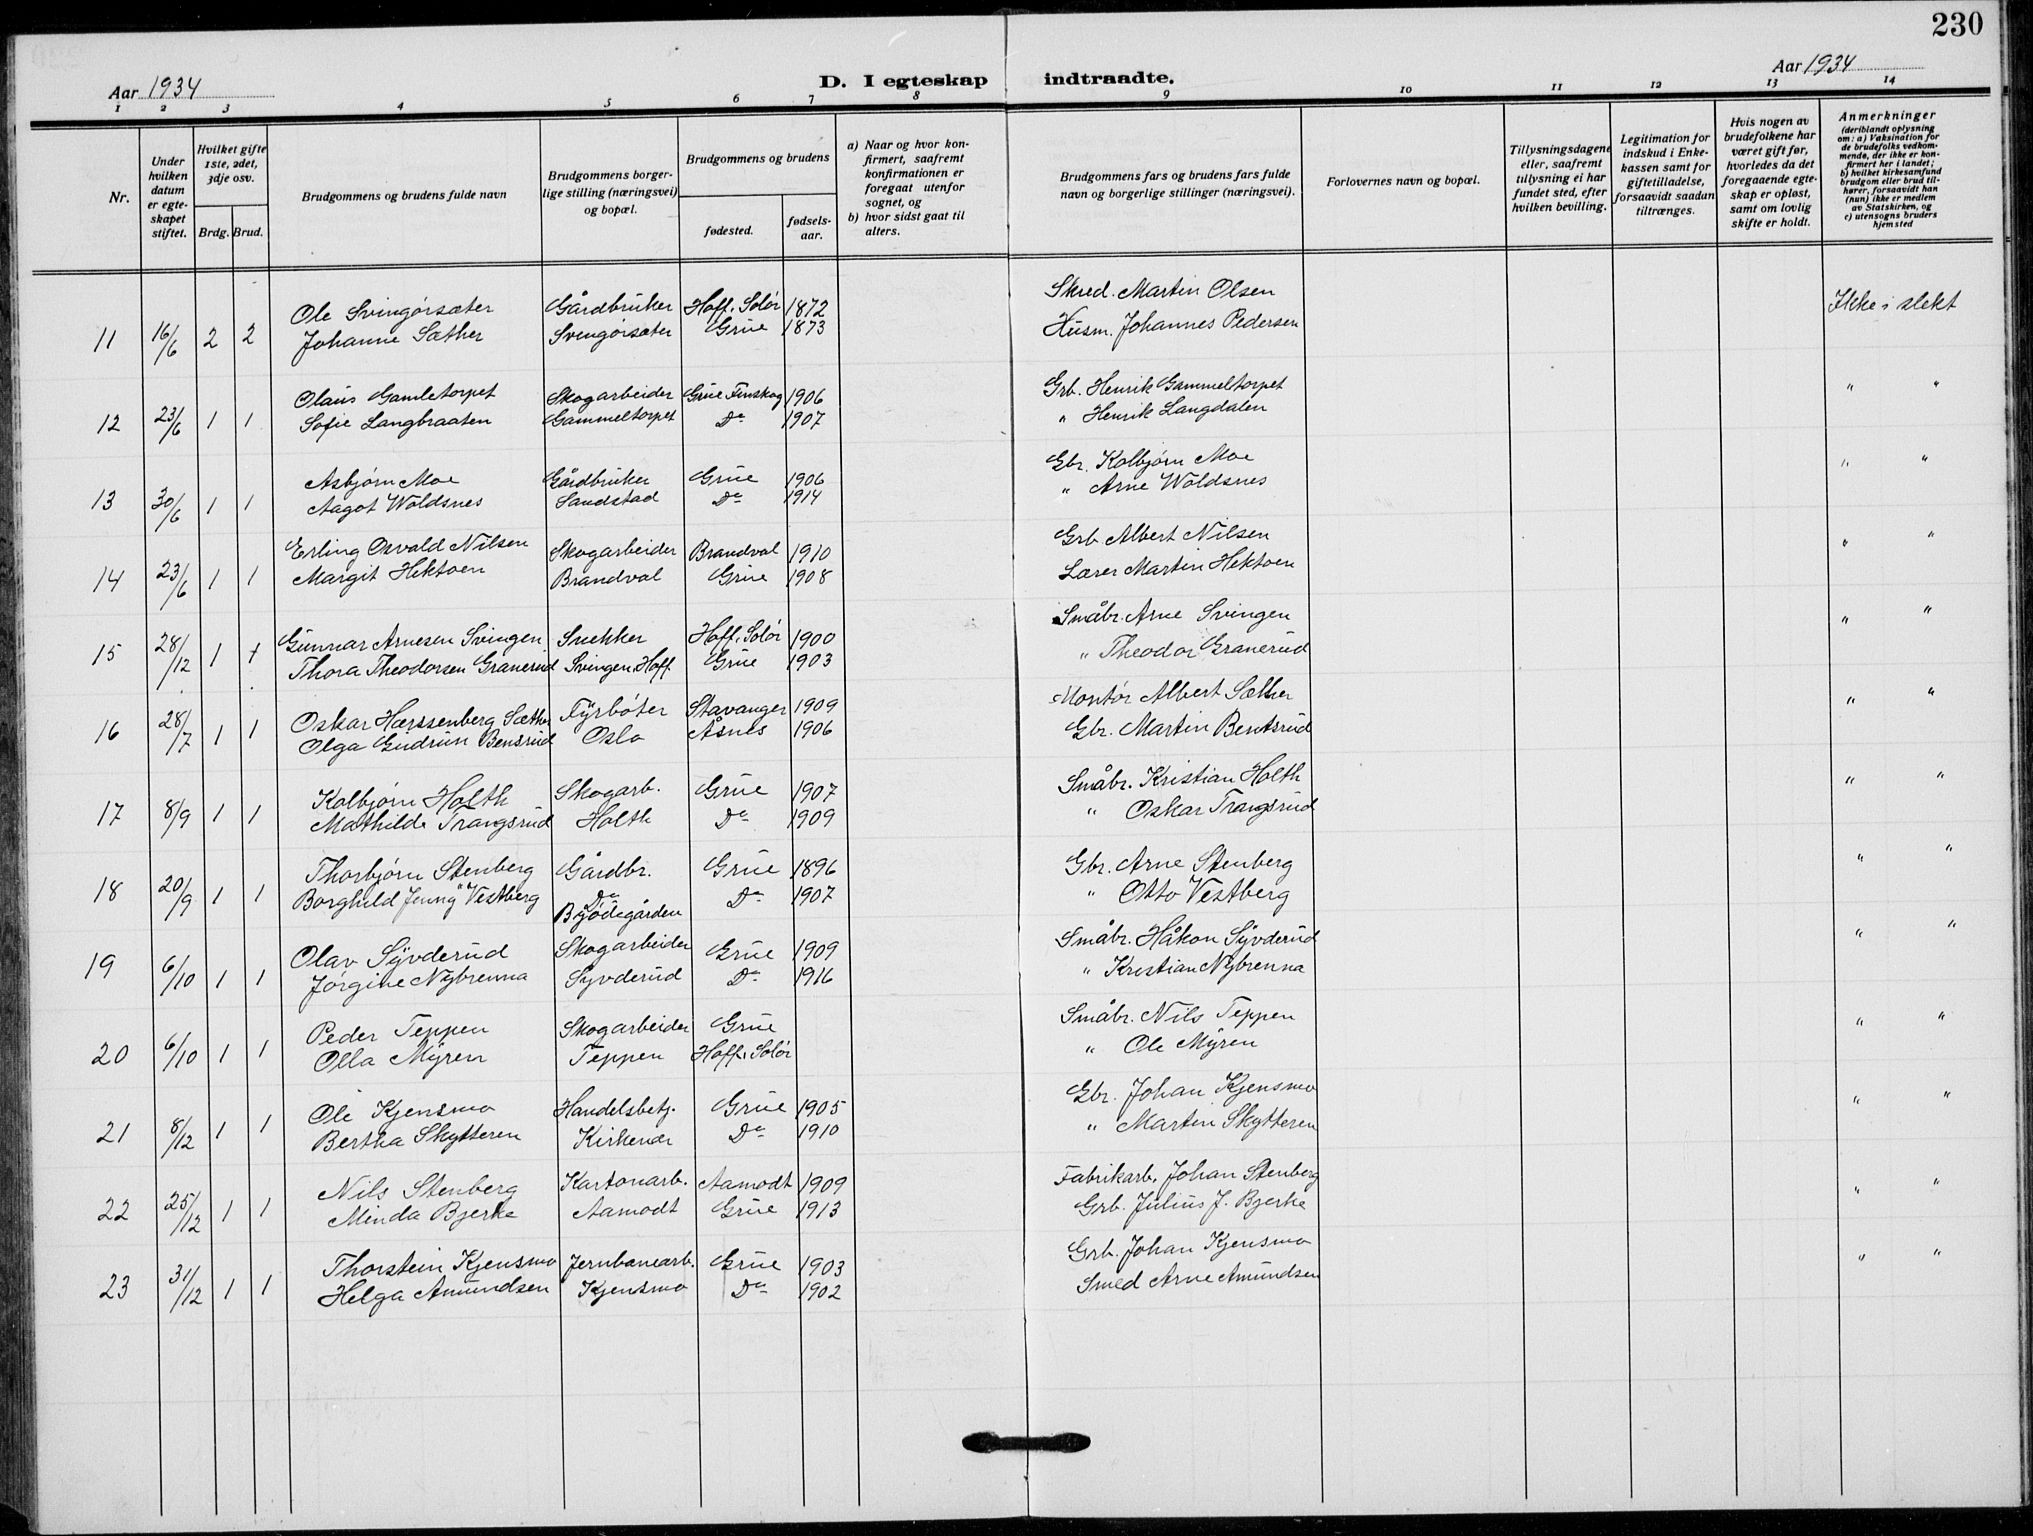 230
Aar 1934
D. I egteskap indtraadte.
Aar 1934
1 2 3 4 5 6 7 8 9 10 11 12 13 14
Nr.
Under hvilken datum er egteskapet stiftet.
Hvilket gifte 1ste, 2det, 3dje osv.
Brdg. Brud.
Brudgommens og brudens fulde navn
Brudgommens borgerlige stilling (næringsvei) og bopæl.
Brudgommens og brudens
fødested.
fødselsaar.
a) Naar og hvor konfirmert, saafremt konfirmationen er foregaat utenfor sognet, og
b) hvor sidst gaat til alters.
Brudgommens fars og brudens fars fulde navn og borgerlige stillinger (næringsvei).
Forlovernes navn og bopæl.
Tillysningsdagene eller, saafremt tillysning ei har fundet sted, efter hvilken bevilling.
Legitimation for indskud i Enkekassen samt for giftetilladelse, forsaavidt saadan tiltrænges.
Hvis nogen av brudefolkene har været gift før, hvorledes da det foregaaende egteskap er opløst, samt om lovlig skifte er holdt.
Anmerkninger
(deriblandt oplysning om: a) Vaksination for de brudefolks vedkommende, der ikke er konfirmert her i landet; b) hvilket kirkesamfund brudgom eller brud tilhører, forsaavidt han (hun) ikke er medlem av Statskirken, og c) utensogns bruders hjemsted
Ole Svingørsæter Gårdbruker Hoff, Solør 1872 Skred. Martin Olsen Ikke i slekt
11 16/6 2 2 Johanne Sæther Svingørsæter Grue 1873 Husm. Johannes Pedersen
Olaus Gamletorpet Skogarbeider Grue Finskog 1906 Grb. Henrik Gammeltorpet " "
12 23/6 1 1 Sofie Langbraaten Gammeltorpet Do 1907 " Henrik Langdalen
Asbjørn Moe Gårdbruker Grue 1906 Gbr. Kolbjørn Moe " "
13 30/6 1 1 Aagot Woldsnes Sandstad Do 1914 " Arne Woldsnes
Erling Osvald Nilsen Skogarbeider Brandval 1910 Grb. Albert Nilsen " "
14 23/6 1 1 Margit Hektoen Brandval Grue 1908 Lærer Martin Hektoen
Gunnar Arnesen Svingen Snekker Hoff, Solør 1900 Småbr. Arne Svingen " "
15 28/12 1 1 Thora Theodorsen Granerud Svingen, Hoff. Grue 1903 " Theodor Granerud
Oskar Hærssenberg Sæther Fyrbøter Stavanger 1909 Montør Albert Sæther " "
16 28/7 1 1 Olga Gudrun Bensrud Oslo Åsnes 1906 Gbr. Martin Bentsrud
Kolbjørn Holth Skogarb. Grue 1907 Småbr. Kristian Holth " "
17 8/9 1 1 Mathilde Trangsrud Holth Do 1909 " Oskar Trangsrud
Thorbjørn Stenberg Gårdbr. Grue 1896 Gbr. Arne Stenberg " "
18 20/9 1 1 Borghild Jenny Vestberg Do 1907 " Otto Vestberg
Olav Syvderud Skogarbeider Grue 1909 Småbr. Håkon Syvderud " "
19 6/10 1 1 Jørgine Nybrenna Syvderud Do 1916 " Kristian Nybrenna
Peder Teppen Skogarbeider Grue Småbr. Nils Teppen " "
20 6/10 1 1 Olla Myren Teppen Hoff, Solør " Ole Myren
Ole Kjensmo Handelsbetj. Grue 1905 Gbr. Johan Kjensmo " "
21 8/12 1 1 Bertha Skytteren Kirkenær Do 1910 " Martin Skytteren
Nils Stenberg Kartonarb. Aamodt 1909 Fabrikarb. Johan Stenberg " "
22 25/12 1 1 Minda Bjerke Aamodt Grue 1913 Grb. Julius J. Bjerke
Thorstein Kjensmo Jernbanearb. Grue 1903 Grb. Johan Kjensmo " "
23 31/12 1 1 Helga Amundsen Kjensmo Do 1902 Smed Arne Amundsen